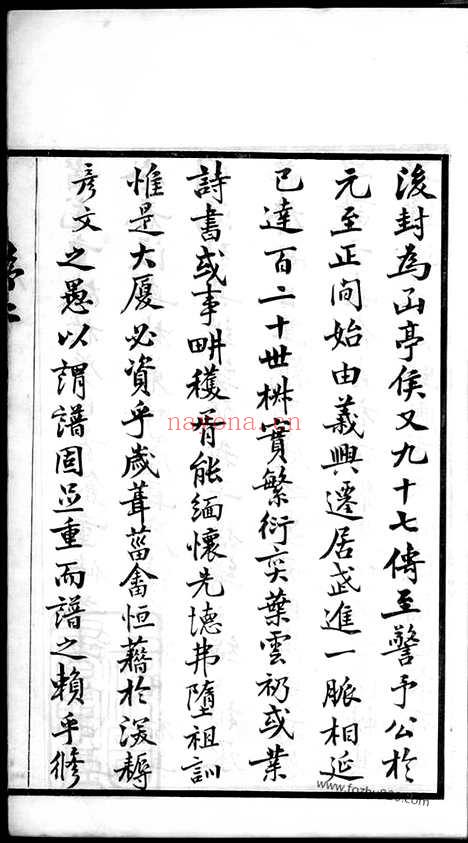 後封為函亭侯又九十七傳至警予公於
元至正間始由義興遷居武進一脈相延
已達百二十世椒實繁衍奕葉雲礽或業
詩書或事畊穫胥能緬懷先德弗墮祖訓
惟是大廈必資乎歲葺菑畬恒藉於深耨
彥文之愚以謂譜固至重而譜之賴乎修
nayona.cn
www.fozhu920.com